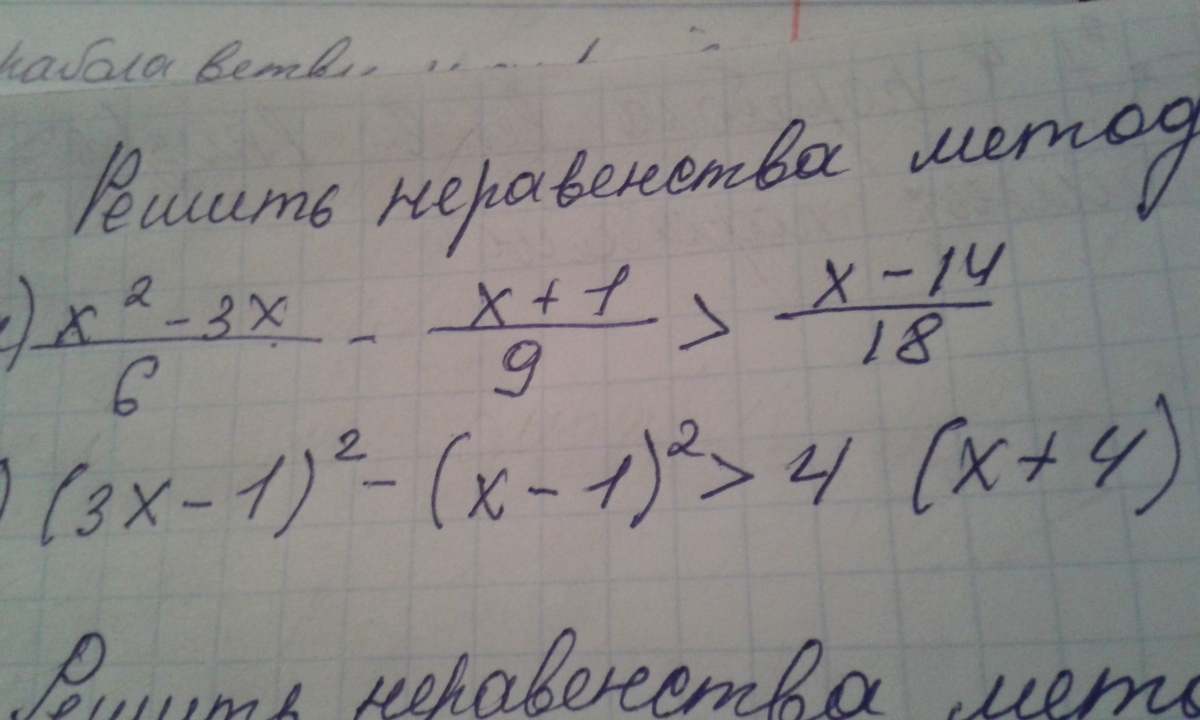 Решить неравенства метод
) x² - 3x / 6 - x + 1 / 9 > x - 14 / 18
) (3x - 1)² - (x - 1)² > 4 (x + 4)
Решить неравенства мето